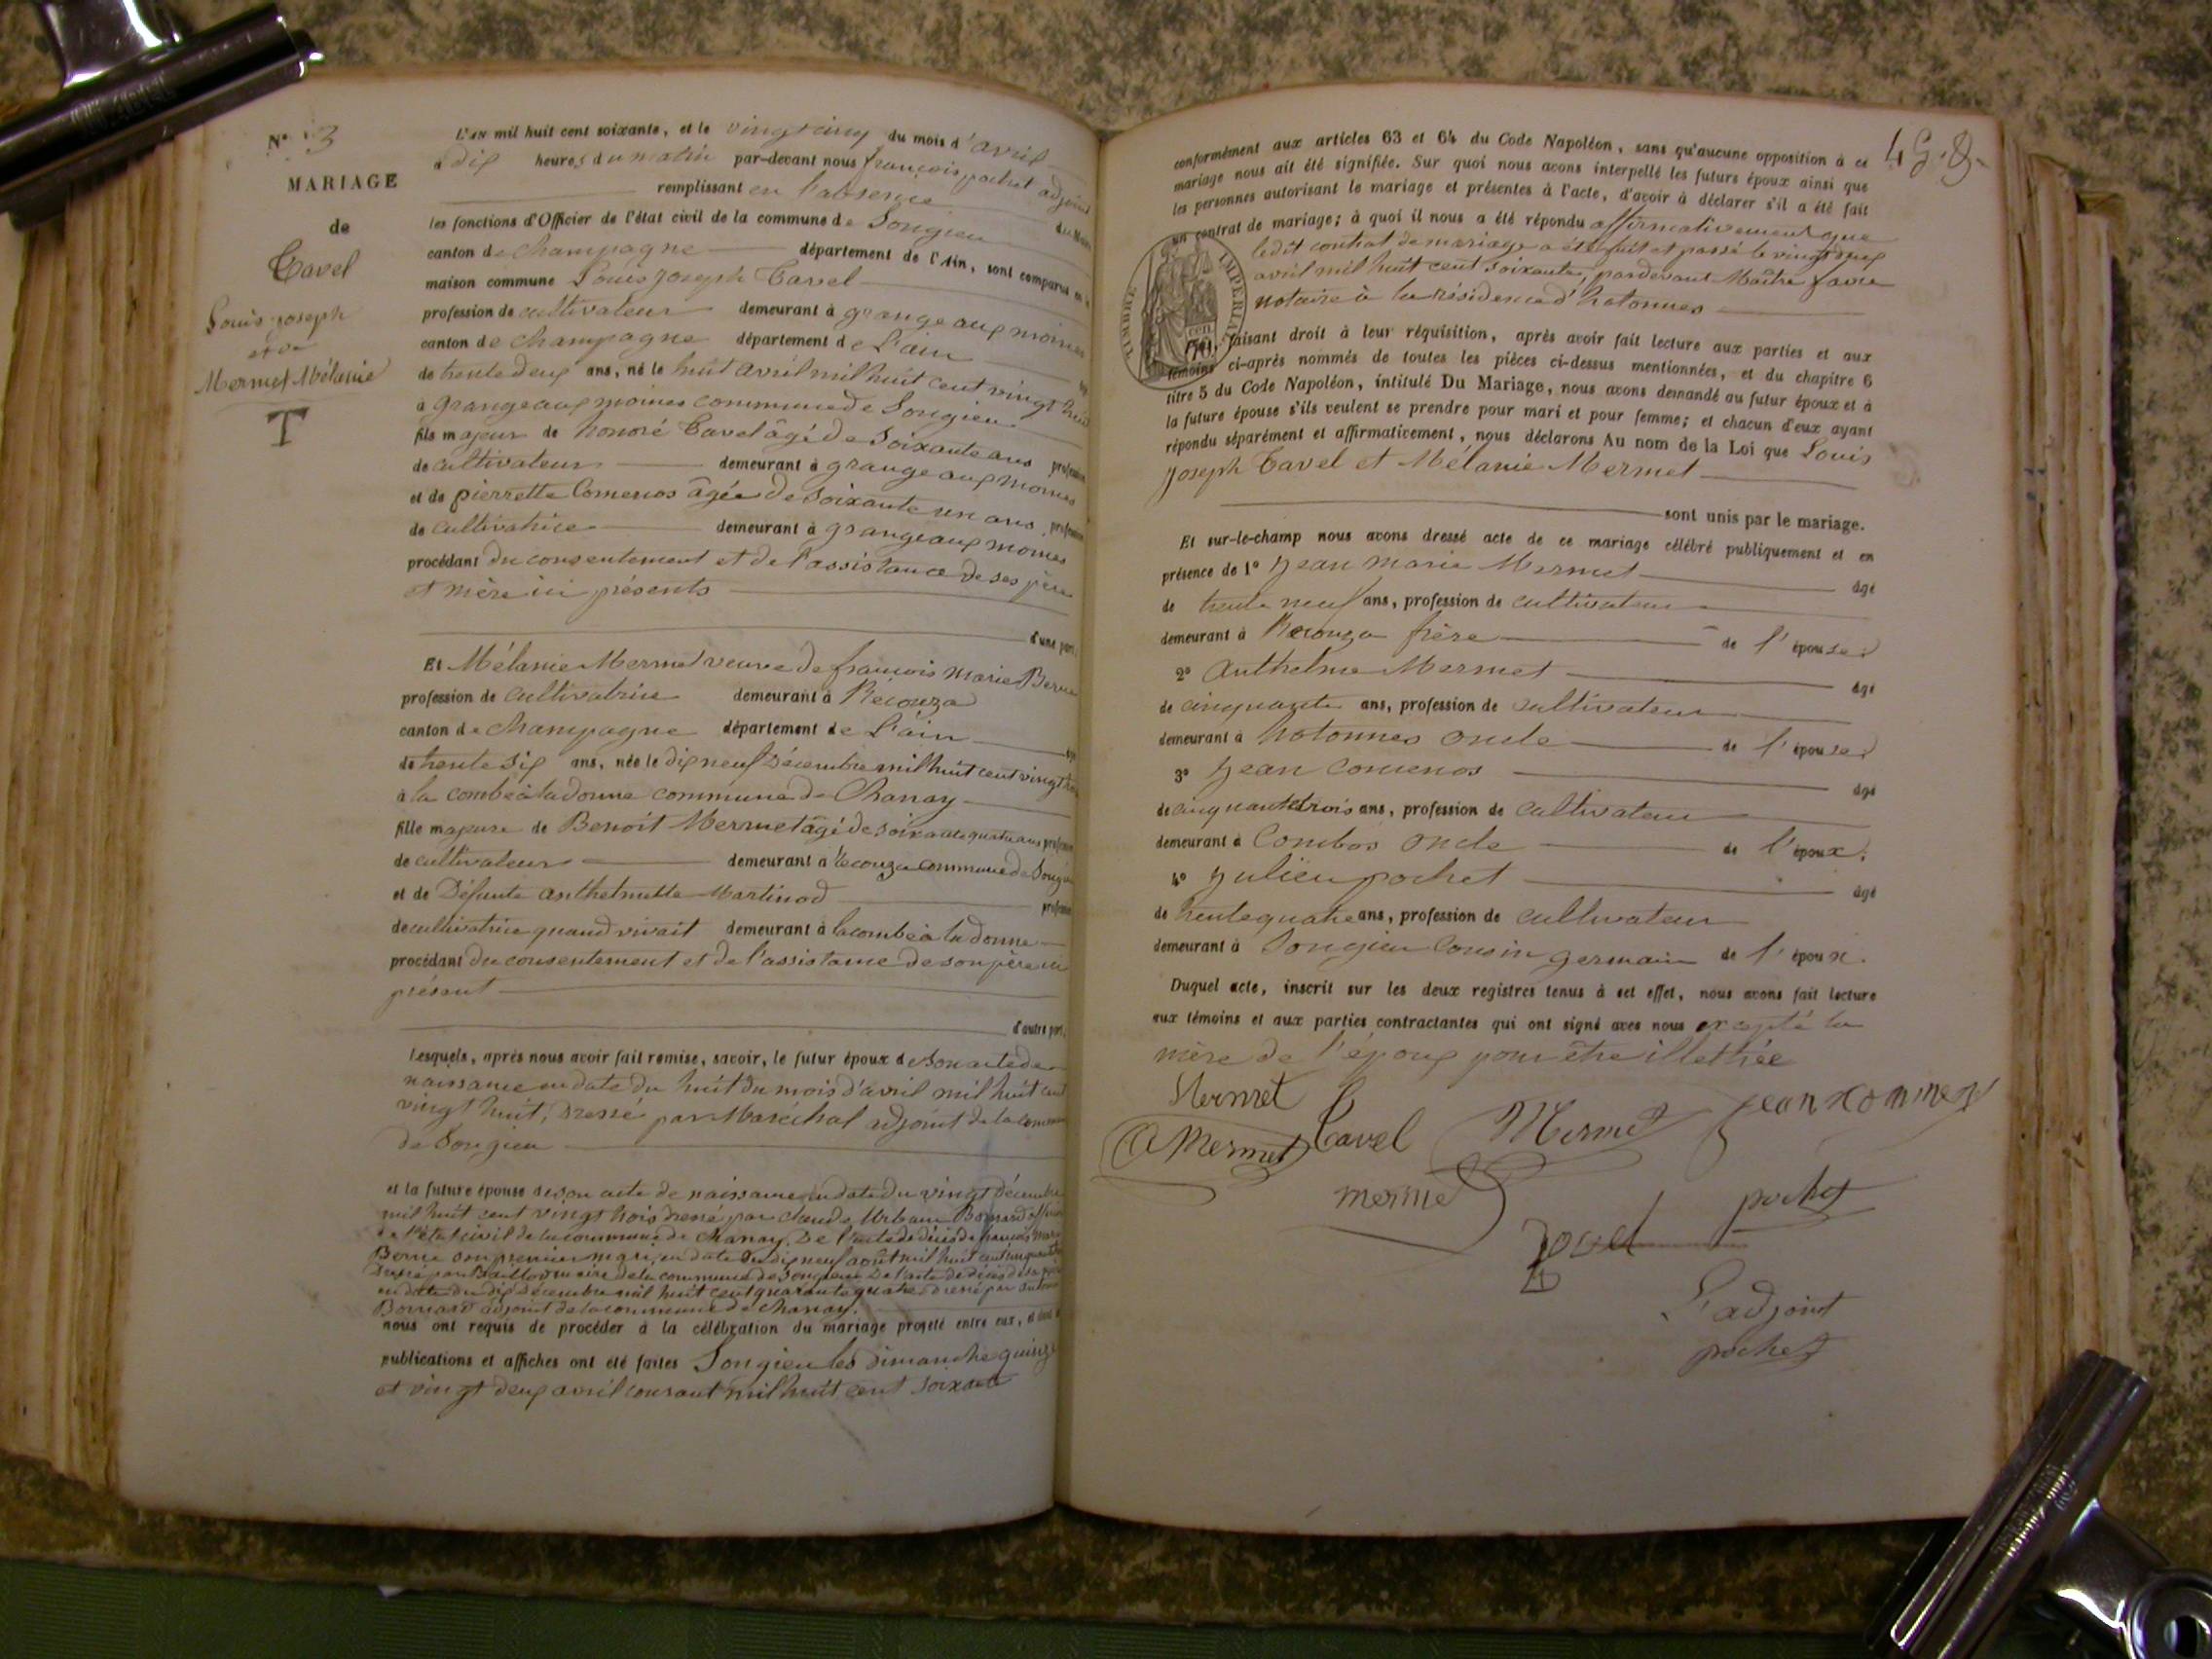 N° 3
MARIAGE
de
Tavel
Louis joseph
et de
Mermet Mélanie
T
L'AN mil huit cent soixante, et le vingt cinq du mois d'avril
à dix heures du matin par-devant nous françois pochet adjoint
remplissant en l'absence du Maire
les fonctions d'Officier de l'état civil de la commune de Songieu
canton de Champagne département de l'Ain, sont comparus en la
maison commune Louis Joseph Tavel
profession de cultivateur demeurant à grange aux moines
canton de Champagne département de L'ain
de trente deux ans, né le huit avril mil huit cent vingt huit
à Grange aux moines commune de Songieu
fils majeur de honoré Tavel âgé de Soixante ans profession
de cultivateur demeurant à grange aux moines
et de pierrette Comenos âgée de soixante un ans profession
de cultivatrice demeurant à grange aux moines
procédant du consentement et de l'assistance de ses père
et mère ici présents
d'une part.
Et Mélanie Mermet veuve de françois Marie Berne
profession de cultivatrice demeurant à Récouza
canton de Champagne département de L'ain
de trente six ans, née le dix neuf Décembre mil huit cent vingt
à la combe à la donne commune de Chanay
fille majeure de Benoit Mermet âgé de soixante quatre ans profession
de cultivateur demeurant à Recouza commune de Songieu
et de Défunte anthelmette Martinod profession
de cultivatrice quand vivait demeurant à la combe à la donne
procédant du consentement et de l'assistance de son père ici
présent
d'autre part.
Lesquels, après nous avoir fait remise, savoir, le futur époux de son acte de
naissance en date du huit du mois d'avril mil huit cent
vingt huit, dressé par Maréchal adjoint de la commune
de Songieu
et la future épouse de son acte de naissance en date du vingt Décembre
mil huit cent vingt trois dressé par Claude Urbain Bornard officier
de l'état civil de la commune de Chanay. De l'acte de décès de françois Marie
Berne son premier mari, en date du dix neuf août mil huit cent cinquante
dressé par maire de la commune de Songieu De l'acte de décès de sa mère
en date du dix Décembre mil huit cent quarante quatre dressé par
Bornard adjoint de la commune de Chanay.
nous ont requis de procéder à la célébration du mariage projeté entre eux, et dont les
publications et affiches ont été faites Songieu les Dimanche quinze
et vingt deux avril courant mil huit cent soixante
conformément aux articles 63 et 64 du Code Napoléon, sans qu'aucune opposition à ce
mariage nous ait été signifiée. Sur quoi nous avons interpellé les futurs époux ainsi que
les personnes autorisant le mariage et présentes à l'acte, d'avoir à déclarer s'il a été fait
un contrat de mariage; à quoi il nous a été répondu affirmativement que
ledit contrat de mariage a été fait et passé le vingt deux
avril mil huit cent soixante, pardevant Maître favre
notaire à la résidence d'hotonnes
TIMBRE IMPERIAL
faisant droit à leur réquisition, après avoir fait lecture aux parties et aux
témoins ci-après nommés de toutes les pièces ci-dessus mentionnées, et du chapitre 6
titre 5 du Code Napoléon, intitulé Du Mariage, nous avons demandé au futur époux et à
la future épouse s'ils veulent se prendre pour mari et pour femme; et chacun d'eux ayant
répondu séparément et affirmativement, nous déclarons Au nom de la Loi que Louis
Joseph Tavel et Mélanie Mermet
sont unis par le mariage.
Et sur-le-champ nous avons dressé acte de ce mariage célébré publiquement et en
présence de 1° Jean Marie Mermet âgé
de trente neuf ans, profession de cultivateur
demeurant à Recouza frère de l'épouse
2° Anthelme Mermet âgé
de cinquante ans, profession de cultivateur
demeurant à hotonnes oncle de l'épouse
3° Jean Comenos âgé
de cinquante trois ans, profession de cultivateur
demeurant à Combos oncle de l'époux.
4° Julien pochet âgé
de trente quatre ans, profession de cultivateur
demeurant à Songieu Cousin germain de l'époux.
Duquel acte, inscrit sur les deux registres tenus à cet effet, nous avons fait lecture
aux témoins et aux parties contractantes qui ont signé avec nous excepté la
mère de l'époux pour être illettrée
Mermet
A Mermet Tavel Mermet
mermet pochet
L'adjoint
pochet